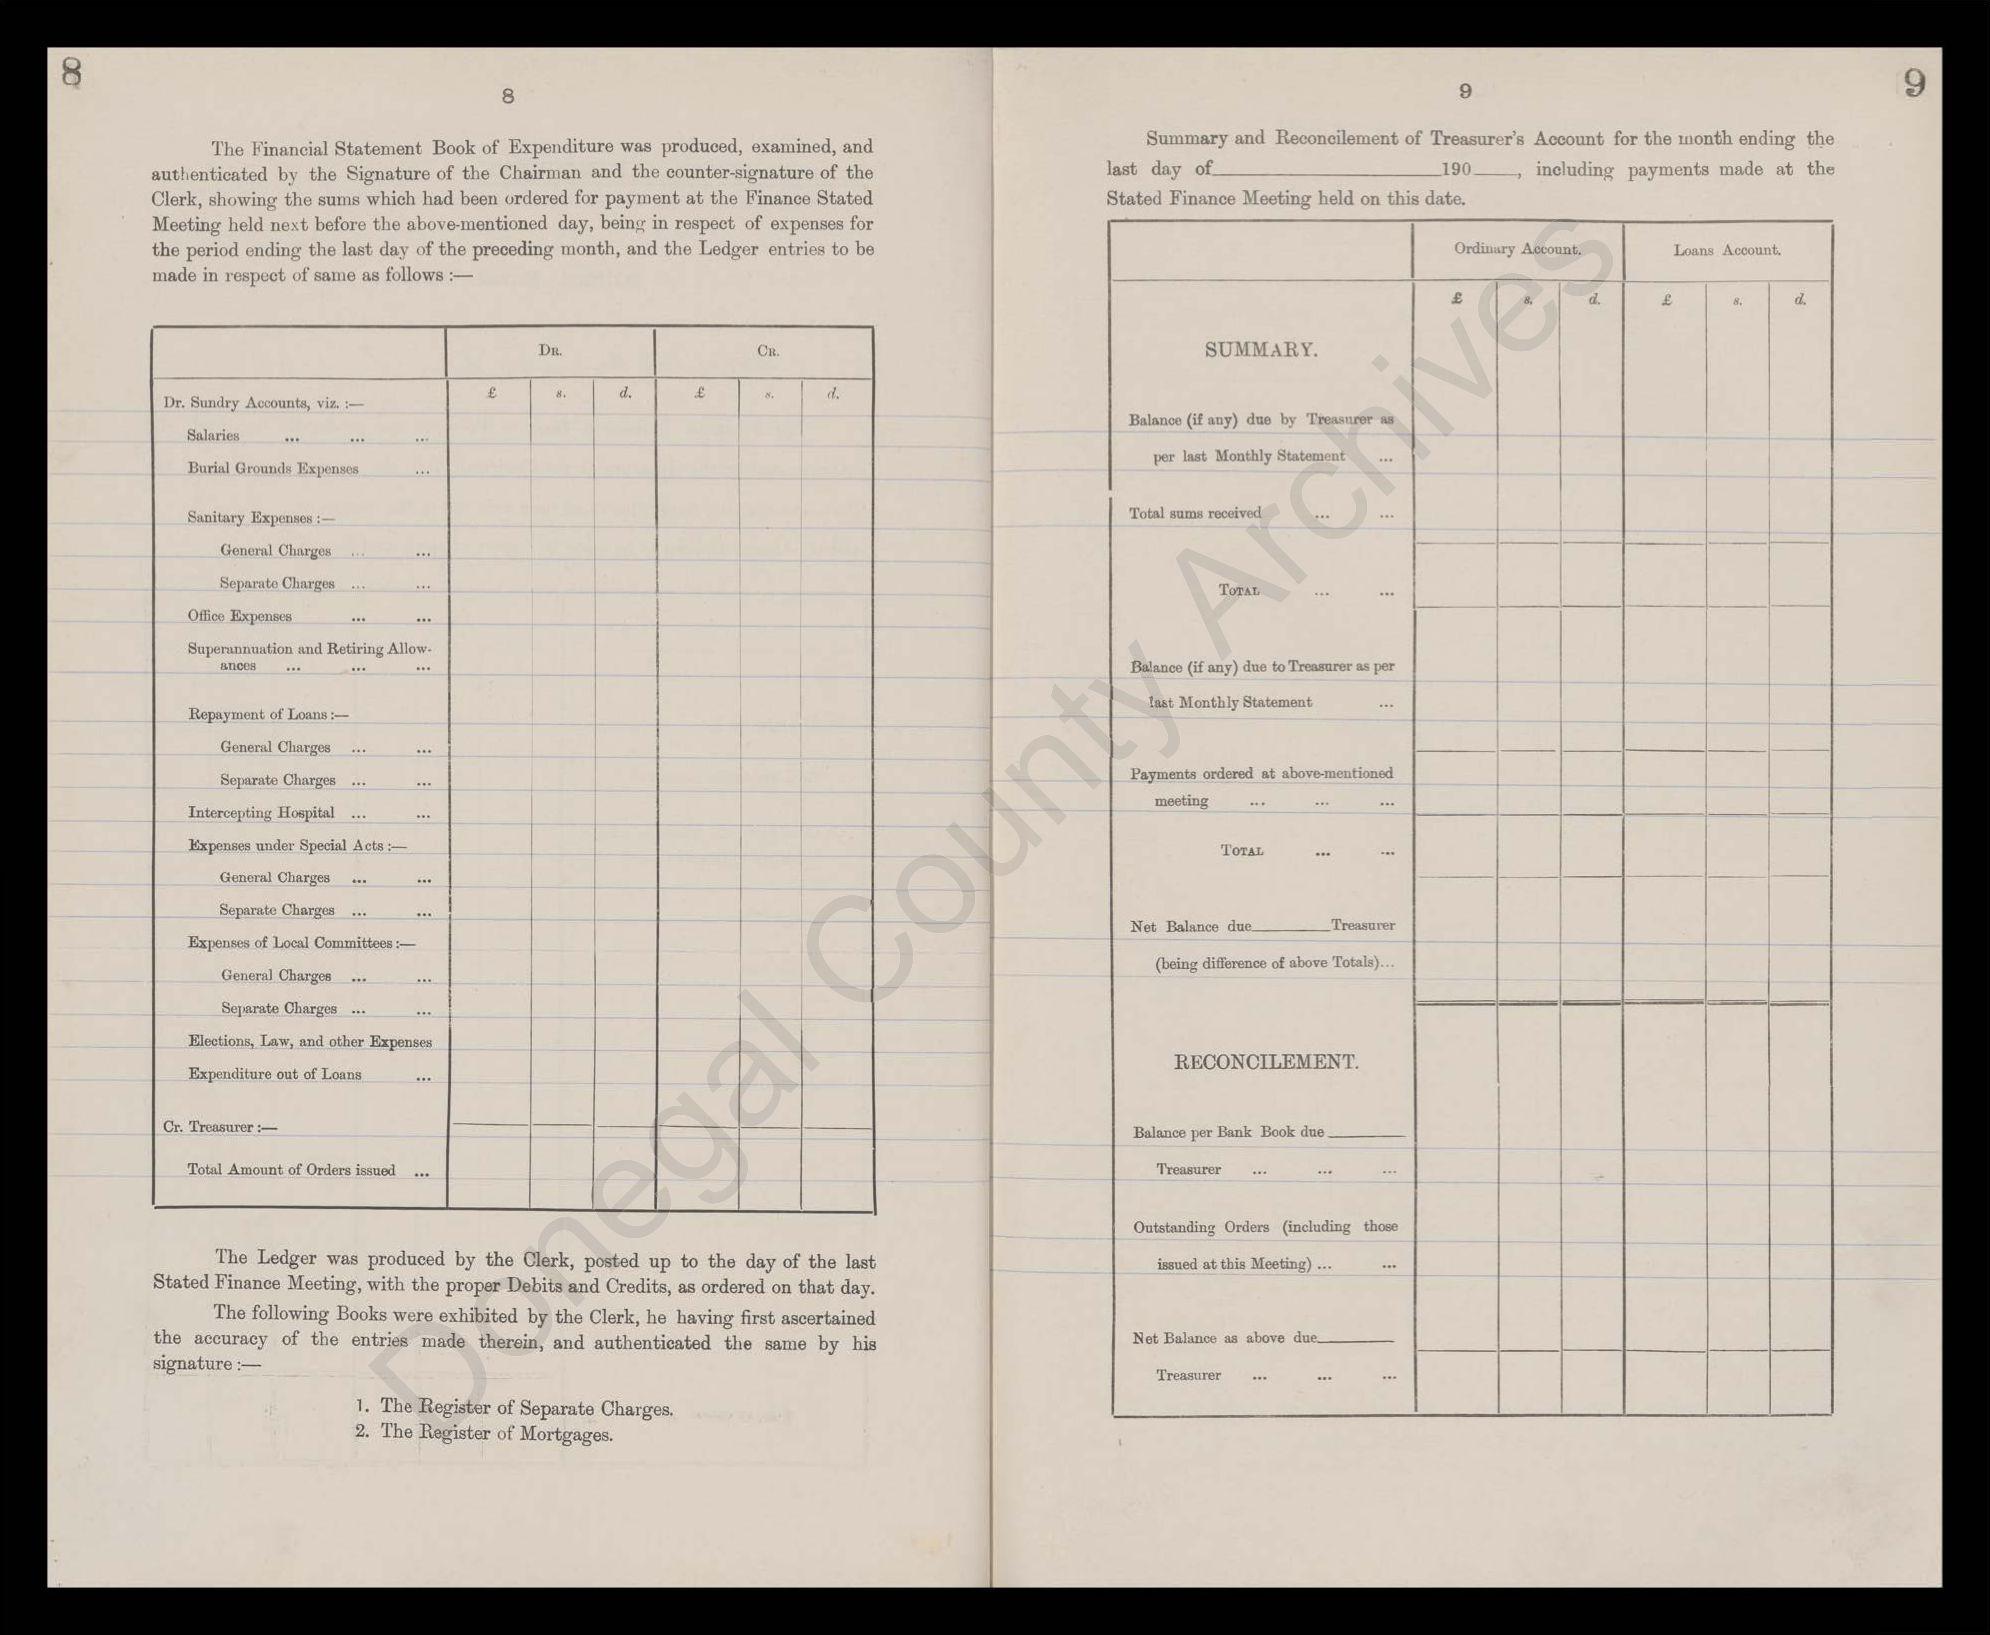 8
8
The Financial Statement Book of Expenditure was produced, examined, and
authenticated by the Signature of the Chairman and the counter-signature of the
Clerk, showing the sums which had been ordered for payment at the Finance Stated
Meeting held next before the above-mentioned day, being in respect of expenses for
the period ending the last day of the preceding month, and the Ledger entries to be
made in respect of same as follows :—
DR. CR.
£ s. d. £ s. d.
Dr. Sundry Accounts, viz. :—
Salaries ... ... ...
Burial Grounds Expenses ...
Sanitary Expenses :—
General Charges ... ...
Separate Charges ... ...
Office Expenses ... ...
Superannuation and Retiring Allow-
ances ... ... ...
Repayment of Loans :—
General Charges ... ...
Separate Charges ... ...
Intercepting Hospital ... ...
Expenses under Special Acts :—
General Charges ... ...
Separate Charges ... ...
Expenses of Local Committees :—
General Charges ... ...
Separate Charges ... ...
Elections, Law, and other Expenses
Expenditure out of Loans ...
Cr. Treasurer :—
Total Amount of Orders issued ...
The Ledger was produced by the Clerk, posted up to the day of the last
Stated Finance Meeting, with the proper Debits and Credits, as ordered on that day.
The following Books were exhibited by the Clerk, he having first ascertained
the accuracy of the entries made therein, and authenticated the same by his
signature :—
1. The Register of Separate Charges.
2. The Register of Mortgages.
9
9
Summary and Reconcilement of Treasurer's Account for the month ending the
last day of ______ 190___, including payments made at the
Stated Finance Meeting held on this date.
Ordinary Account. Loans Account.
£ s. d. £ s. d.
SUMMARY.
Balance (if any) due by Treasurer as
per last Monthly Statement ...
Total sums received ... ...
TOTAL ... ...
Balance (if any) due to Treasurer as per
last Monthly Statement ...
Payments ordered at above-mentioned
meeting ... ... ...
TOTAL ... ...
Net Balance due ______ Treasurer
(being difference of above Totals)...
RECONCILEMENT.
Balance per Bank Book due ______
Treasurer ... ... ...
Outstanding Orders (including those
issued at this Meeting) ... ...
Net Balance as above due ______
Treasurer ... ... ...
Donegal County Archives